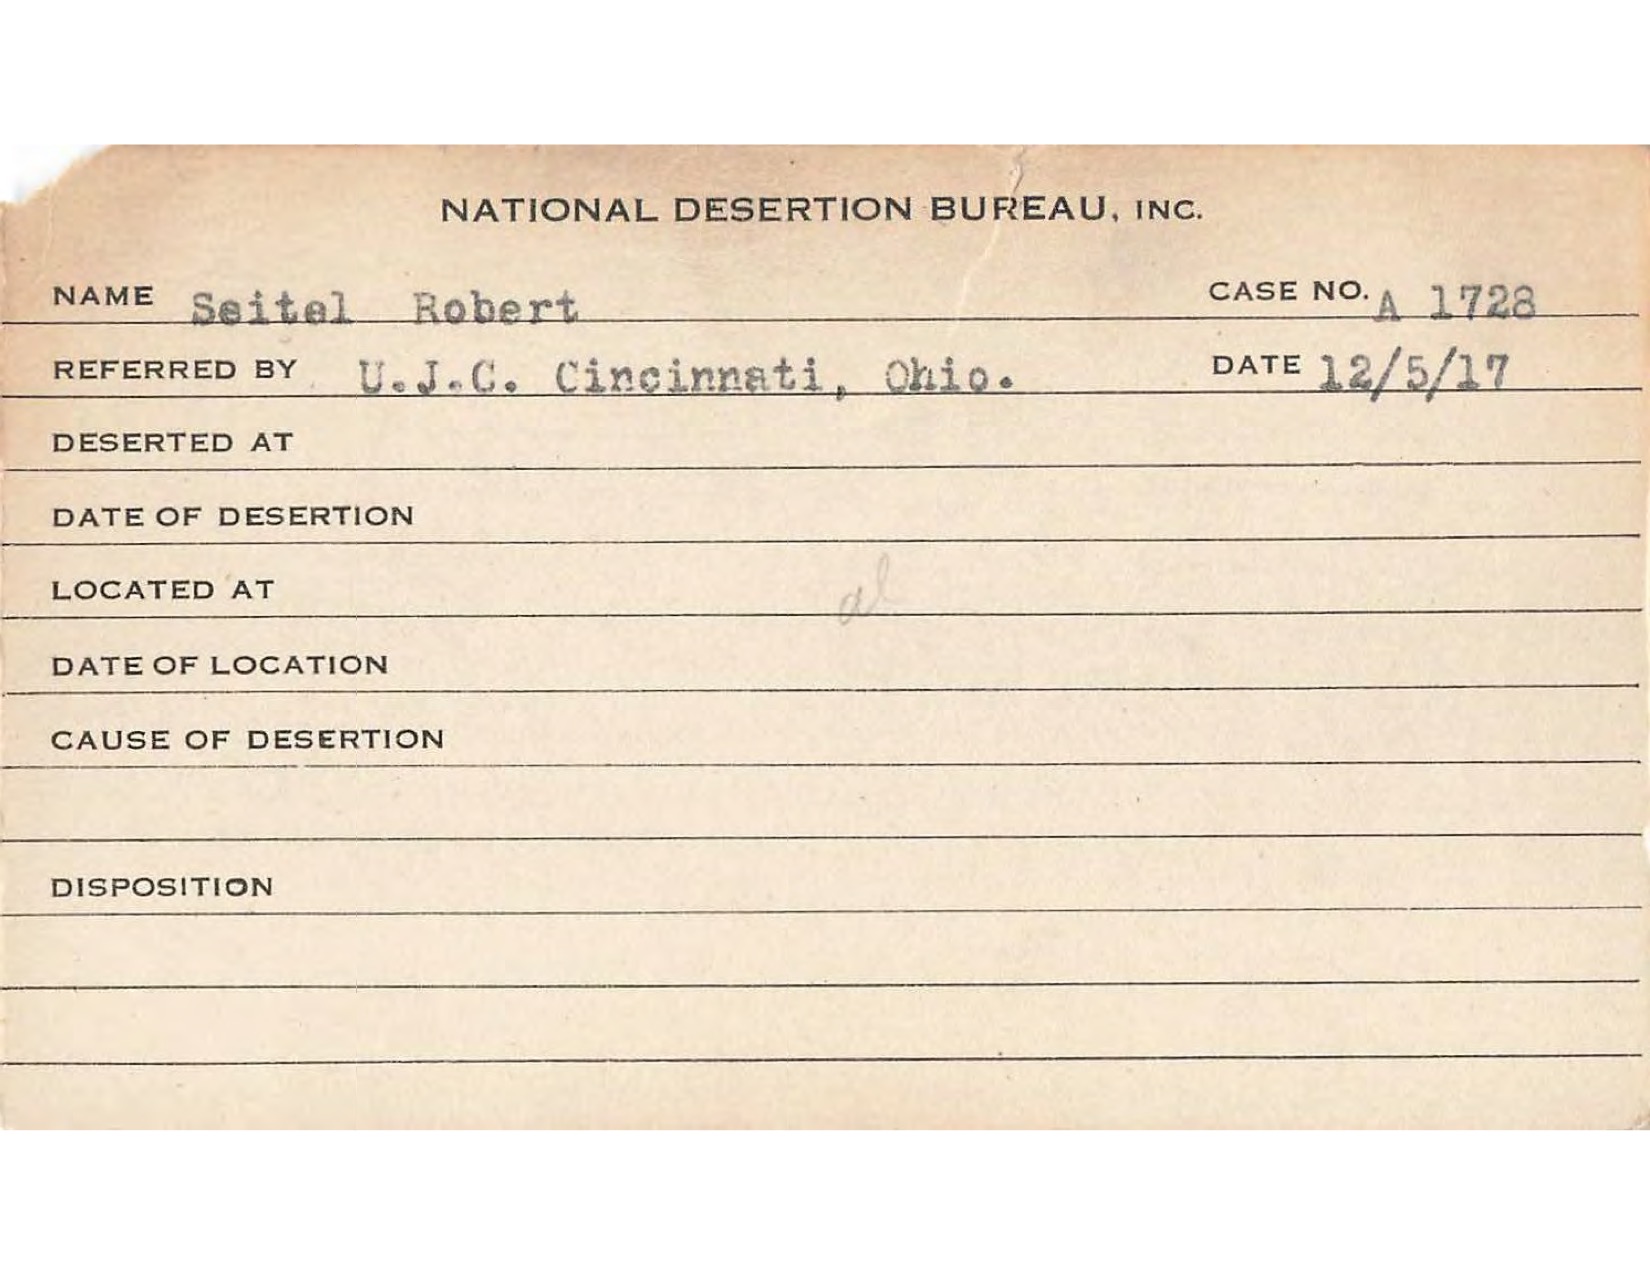 NATIONAL DESERTION BUREAU, INC.
NAME Seitel Robert CASE NO. A 1728
REFERRED BY U.J.C. Cincinnati, Ohio. DATE 12/5/17
DESERTED AT
DATE OF DESERTION
LOCATED AT
DATE OF LOCATION
CAUSE OF DESERTION
DISPOSITION